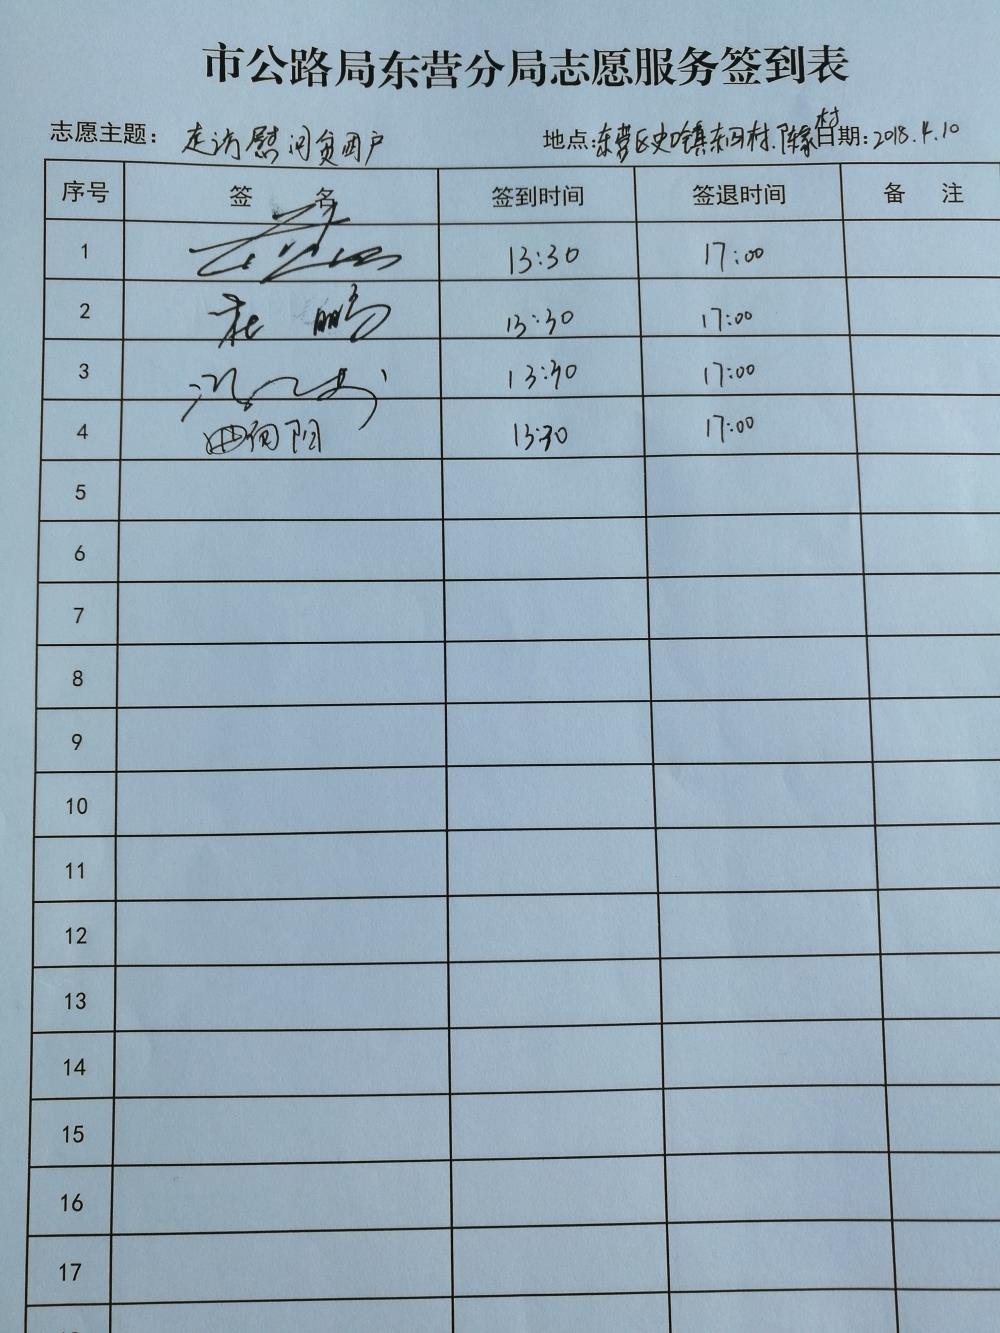 市公路局东营分局志愿服务签到表
志愿主题： 走访慰问贫困户 地点:东营区史口镇 村 村 日期:2018.4.10
序号 签 名 签到时间 签退时间 备 注
1 13:30 17:00
2 杜鹏 13:30 17:00
3 13:30 17:00
4 曲向阳 13:30 17:00
5
6
7
8
9
10
11
12
13
14
15
16
17